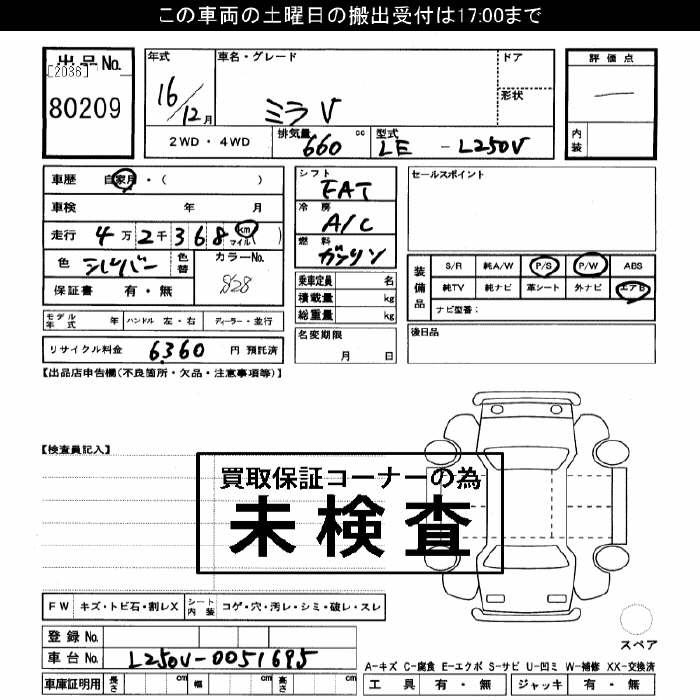 この車両の土曜日の搬出受付は17:00まで
出品No.
[2036]
80209
年式
16/12月
車名・グレード
ミラ V
ドア
形状
評価点
内装
2WD・4WD
排気量
660 cc
型式
LE - L250V
車歴 自家用・( )
車検 年 月
走行 4万2千368 km マイル( )
色 シルバー
色替
カラーNo.
S28
保証書 有・無
シフト
FAT
冷房
A/C
燃料
ガソリン
乗車定員 名
積載量 kg
総重量 kg
セールスポイント
装備品
S/R 純A/W P/S P/W ABS
純TV 純ナビ 革シート 外ナビ エアB
ナビ型番:
モデル年式 年 ハンドル 左・右 ディーラー・並行
リサイクル料金 6360 円 預託済
名変期限
月 日
後日品
【出品店申告欄(不良箇所・欠品・注意事項等)】
【検査員記入】
買取保証コーナーの為
未検査
FW キズ・トビ石・割レX シート内装 コゲ・穴・汚レ・シミ・破レ・スレ
登録No.
車台No. L250V-0051695
車庫証明用 長さ cm 幅 cm 高さ cm
スペア
A-キズ C-腐食 E-エクボ S-サビ U-凹ミ W-補修 XX-交換済
工具 有・無 ジャッキ 有・無